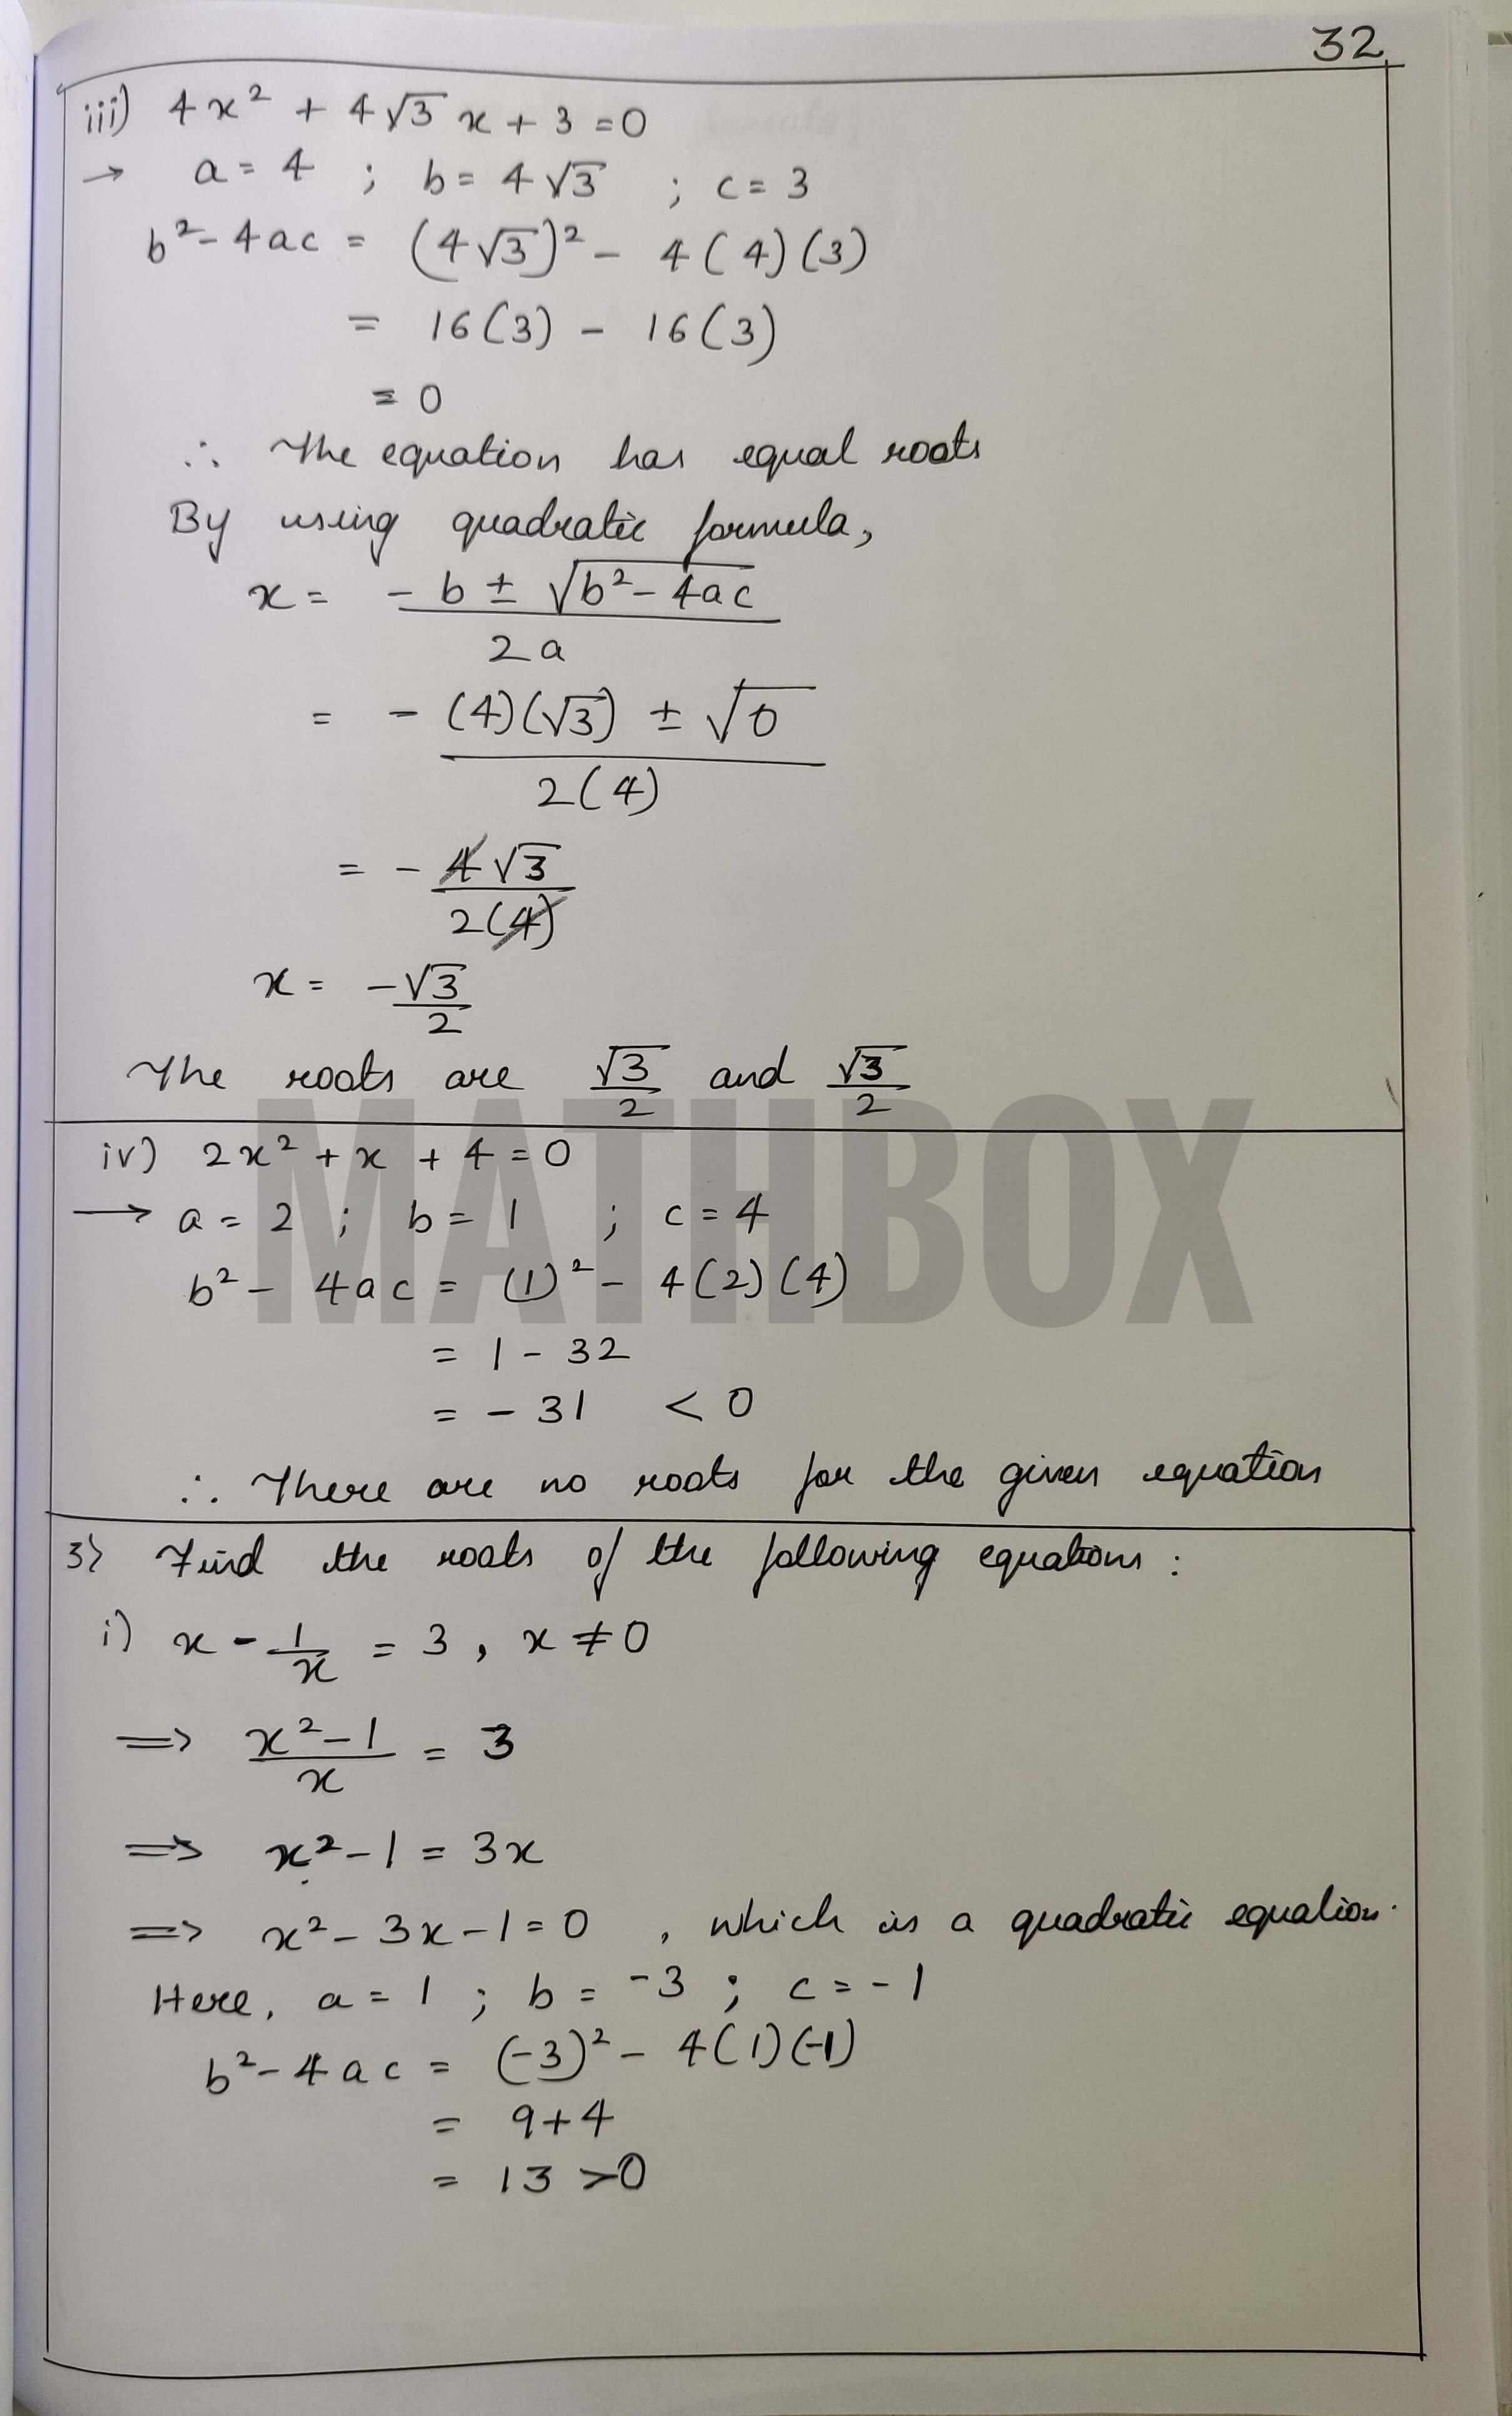 32
iii) 4x² + 4√3 x + 3 = 0
→ a = 4 ; b = 4√3 ; c = 3
b² - 4ac = (4√3)² - 4(4)(3)
= 16(3) - 16(3)
= 0
∴ The equation has equal roots
By using quadratic formula,
x = -b ± √b² - 4ac
2a
= -(4)(√3) ± √0
2(4)
= -4√3
2(4)
x = -√3
2
The roots are √3/2 and √3/2
MATHBOX
iv) 2x² + x + 4 = 0
→ a = 2 ; b = 1 ; c = 4
b² - 4ac = (1)² - 4(2)(4)
= 1 - 32
= -31 < 0
∴ There are no roots for the given equation
3) Find the roots of the following equations :
i) x - 1/x = 3, x ≠ 0
⇒ x² - 1 = 3
x
⇒ x² - 1 = 3x
⇒ x² - 3x - 1 = 0 , which is a quadratic equation.
Here, a = 1 ; b = -3 ; c = -1
b² - 4ac = (-3)² - 4(1)(-1)
= 9 + 4
= 13 > 0